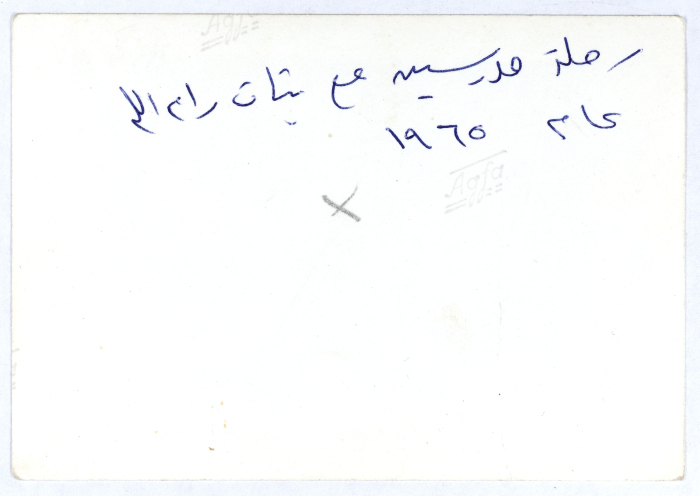 رحلة مدرسية مع بنات رام الله
عام ١٩٦٥
Agfa
Agfa